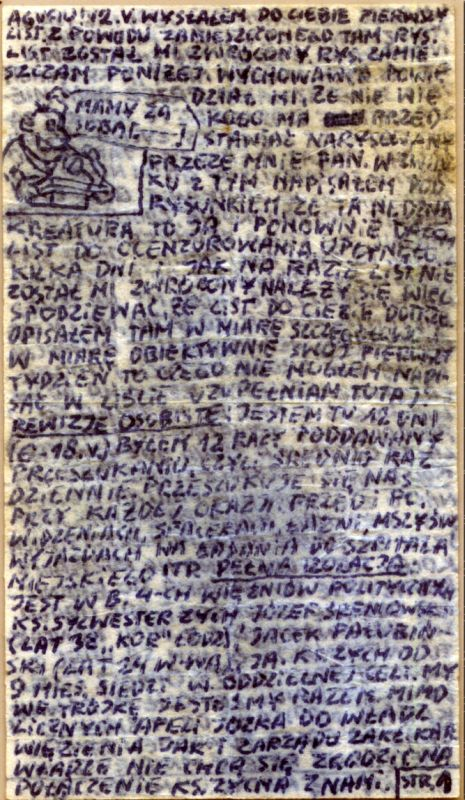 AGUSIU! 12.V. WYSŁAŁEM DO CIEBIE PIERWSZY
LIST. Z POWODU ZAMIESZCZONEGO TAM RYS.
LIST ZOSTAŁ MI ZWRÓCONY. RYS. ZAMIE
SZCZAM PONIŻEJ. WYCHOWAWCA POWIE
DZIAŁ MI, ŻE NIE WIE
MAMY ZA
SOBĄ
KOGO MA PRZED
STAWIAĆ NARYSOWANY
PRZEZE MNIE PAN. W ZWIĄZ
KU Z TYM NAPISAŁEM POD
RYSUNKIEM, ŻE TA NĘDZNA
KREATURA TO JA I PONOWNIE DAŁEM
LIST DO OCENZUROWANIA. UPŁYNĘŁO
KILKA DNI I JAK NA RAZIE LIST NIE
ZOSTAŁ MI ZWRÓCONY. NALEŻY SIĘ WIĘC
SPODZIEWAĆ, ŻE LIST DO CIEBIE DOTRZE
OPISAŁEM TAM W MIARĘ SZCZEGÓŁOWO I
W MIARĘ OBIEKTYWNIE SWÓJ PIERWSZY
TYDZIEŃ. TO CZEGO NIE MOGŁEM NAPI
SAĆ W LIŚCIE UZUPEŁNIAM TUTAJ.
REWIZJE OSOBISTE: JESTEM TU 12 DNI
(6-18.V.) BYŁEM 12 RAZY PODDAWANY
PRZESZUKANIU CZYLI ŚREDNIO RAZ
DZIENNIE. PRZESZUKUJE SIĘ NAS
PRZY KAŻDEJ OKAZJI: PRZED I PO
WIDZENIACH, SPACERACH, ŁAŹNI, MSZY ŚW
WYJAZDACH NA BADANIA DO SZPITALA
MIEJSKIEGO ITP. PEŁNA IZOLACJA:
JEST W B. 4-CH WIĘŹNIÓW POLITYCZNYCH
KS. SYLWESTER ZYCH, JÓZEF ŚRENIOWSKI
(LAT 38 „KOR" ŁÓDŹ), JACEK PAŁUBIN
SKI (LAT 24 W-WA), JA. KS. ZYCH OD
9 MIES. SIEDZI W ODDZIELNEJ CELI. MY
WE TRÓJKĘ JESTEŚMY RAZEM. MIMO
LICZNYCH APELI JÓZKA DO WŁADZ
WIĘZIENIA JAK I ZARZĄDU ZAKŁ. KAR.
WŁADZE NIE CHCĄ SIĘ ZGODZIĆ NA
POŁĄCZENIE KS. ZYCHA Z NAMI. STR. 1